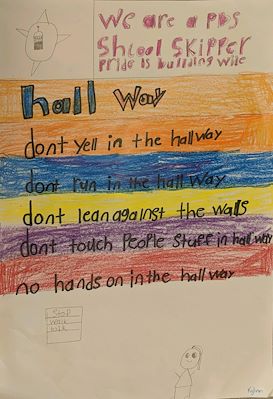 We are a PBS
Shcool SKIPPer
Pride is building wile
hall way
dont yell in the hallway
dont run in the hallway
dont lean against the walls
dont touch People Stuff in hallway
no hands on in the hallway
Stop
walk